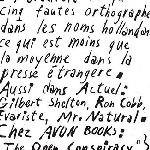 cinq fautes orthographe
dans les noms hollandon
ce qui est moins que
la moyenne dans la
presse étrangere.
Aussi dans Actuel:
Gilbert Shelton, Ron Cobb,
Evariste, Mr. Natural.
Chez AVON BOOKS:
"The Open Conspiracy"